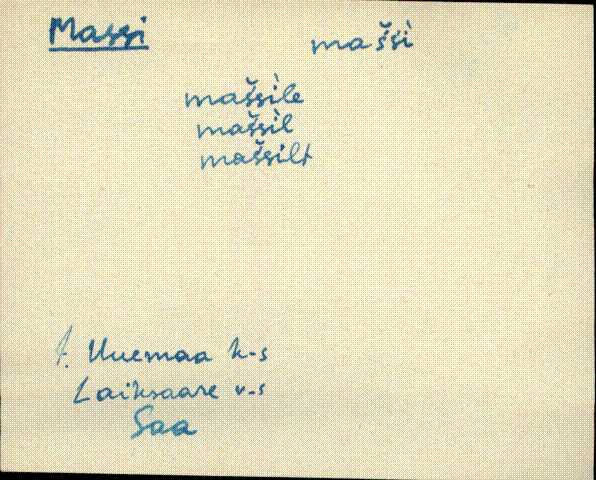 Massi mašsì
mašsìle
mašsìl
mašsilt
t. Uuemaa k-s
Laiksaare v-s
Saa